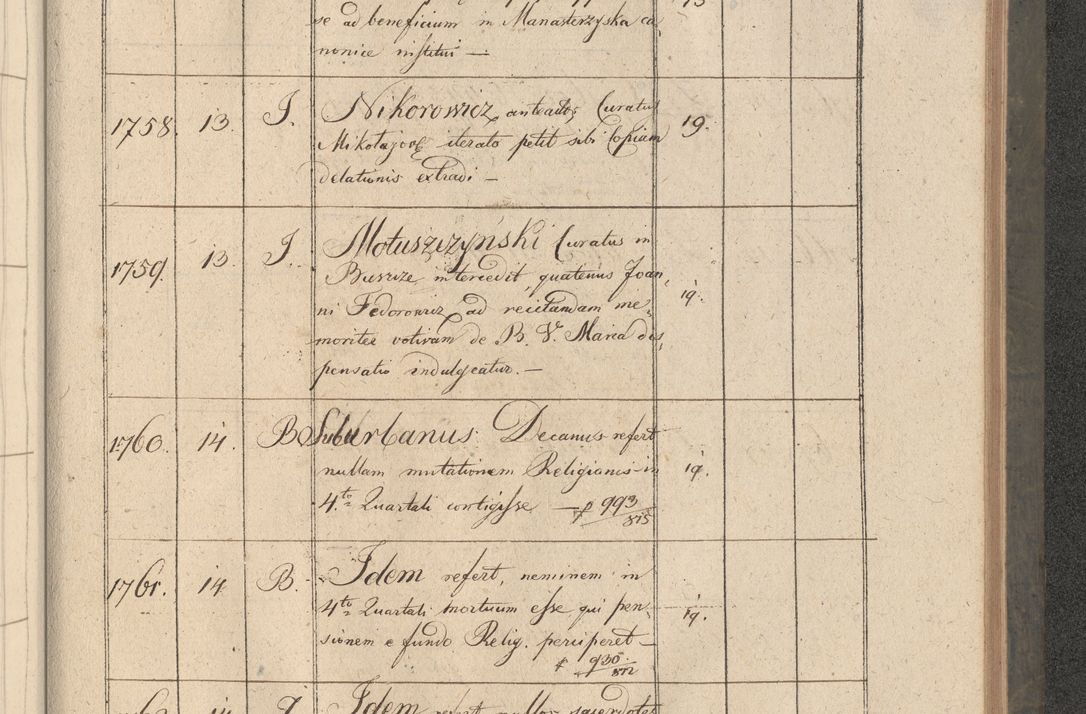 se ad beneficium in Manasterzyska ca
nonice institui —
1758. 13. J. Nikorowicz anteactus Curatus 19.
Mikołajov iterato petit sibi Copiam
delationis extradi —
1759. 13. J. Motuszczyński Curatus in
intercedit, quatenus Joan, 19.
ni Fedorowicz ad recitandam me,
moriter votivam de B. V. Maria dis,
pensatio indulgeatur. —
1760. 14. B. Suburbanus Decanus refert
nullam mutationem Religionis in 19.
4.to Quartali contigisse — 993
1761. 14. B. Idem refert, neminem in
4to Quartali mortuum esse qui pen, 19.
sionem e fundo Relig. perciperet —
930.
Idem refert nullos sacerdotes